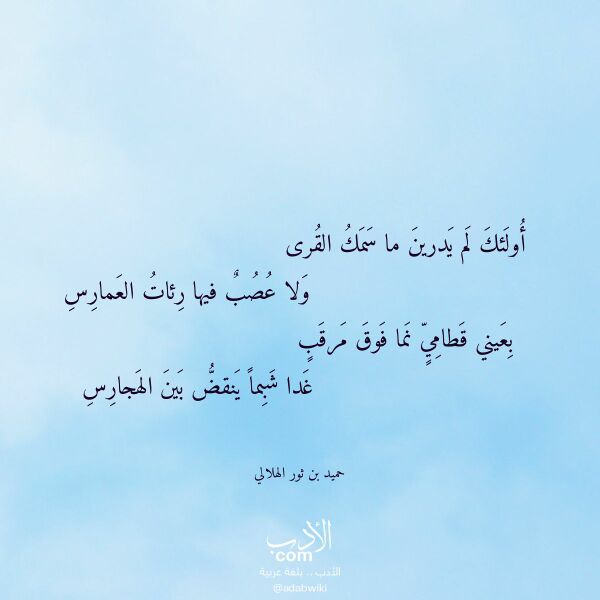 أُولَئكَ لَم يَدرينَ ما سَمَكُ القُرى
وَلا عُصُبٌ فيها رِئاتُ العَمارِسِ
بِعَيني قَطامِيٍّ نَما فَوقَ مَرقَبٍ
غَدا شَبِماً يَنقضُّ بَينَ الهَجارِسِ
حميد بن ثور الهلالي
الأدب
com
الأدب .. بلغة عربية
@adabwiki